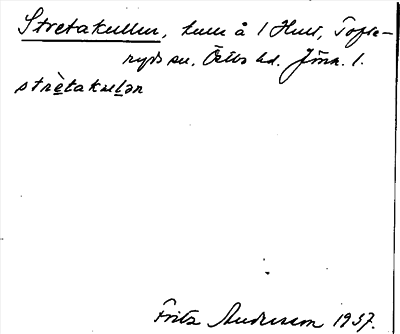 Stretakullen, kulle å 1 Hult, Tofte-
ryds sn. Östbo hd. Jönk. l.
strètakulən
Fritz Andersson 1937.